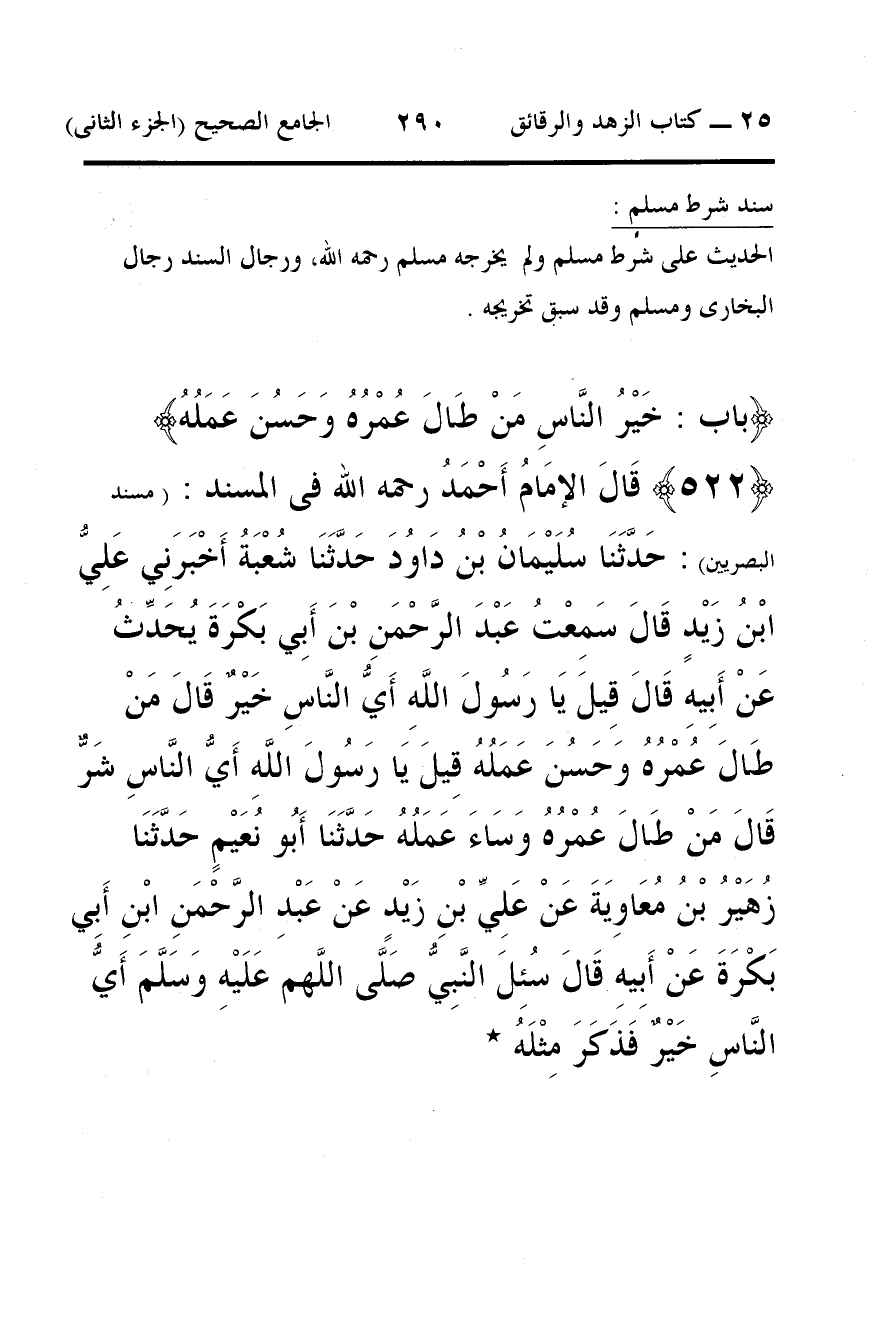 ٢٥ ــ كتاب الزهد والرقائق ٢٩٠ الجامع الصحيح (الجزء الثانى)
سند شرط مسلم :
الحديث على شرط مسلم ولم يخرجه مسلم رحمه الله، ورجال السند رجال
البخارى ومسلم وقد سبق تخريجه .
﴿باب : خَيْرُ النَّاسِ مَنْ طَالَ عُمْرُهُ وَحَسُنَ عَمَلُهُ﴾
﴿٥٢٢﴾ قَالَ الإِمَامُ أَحْمَدُ رحمه الله فى المسند : ( مسند
البصريين) : حَدَّثَنَا سُلَيْمَانُ بْنُ دَاوُدَ حَدَّثَنَا شُعْبَةُ أَخْبَرَنِي عَلِيُّ
ابْنُ زَيْدٍ قَالَ سَمِعْتُ عَبْدَ الرَّحْمَنِ بْنَ أَبِي بَكْرَةَ يُحَدِّثُ
عَنْ أَبِيهِ قَالَ قِيلَ يَا رَسُولَ اللَّهِ أَيُّ النَّاسِ خَيْرٌ قَالَ مَنْ
طَالَ عُمْرُهُ وَحَسُنَ عَمَلُهُ قِيلَ يَا رَسُولَ اللَّهِ أَيُّ النَّاسِ شَرٌّ
قَالَ مَنْ طَالَ عُمْرُهُ وَسَاءَ عَمَلُهُ حَدَّثَنَا أَبُو نُعَيْمٍ حَدَّثَنَا
زُهَيْرُ بْنُ مُعَاوِيَةَ عَنْ عَلِيِّ بْنِ زَيْدٍ عَنْ عَبْدِ الرَّحْمَنِ ابْنِ أَبِي
بَكْرَةَ عَنْ أَبِيهِ قَالَ سُئِلَ النَّبِيُّ صَلَّى اللَّهم عَلَيْهِ وَسَلَّمَ أَيُّ
النَّاسِ خَيْرٌ فَذَكَرَ مِثْلَهُ *